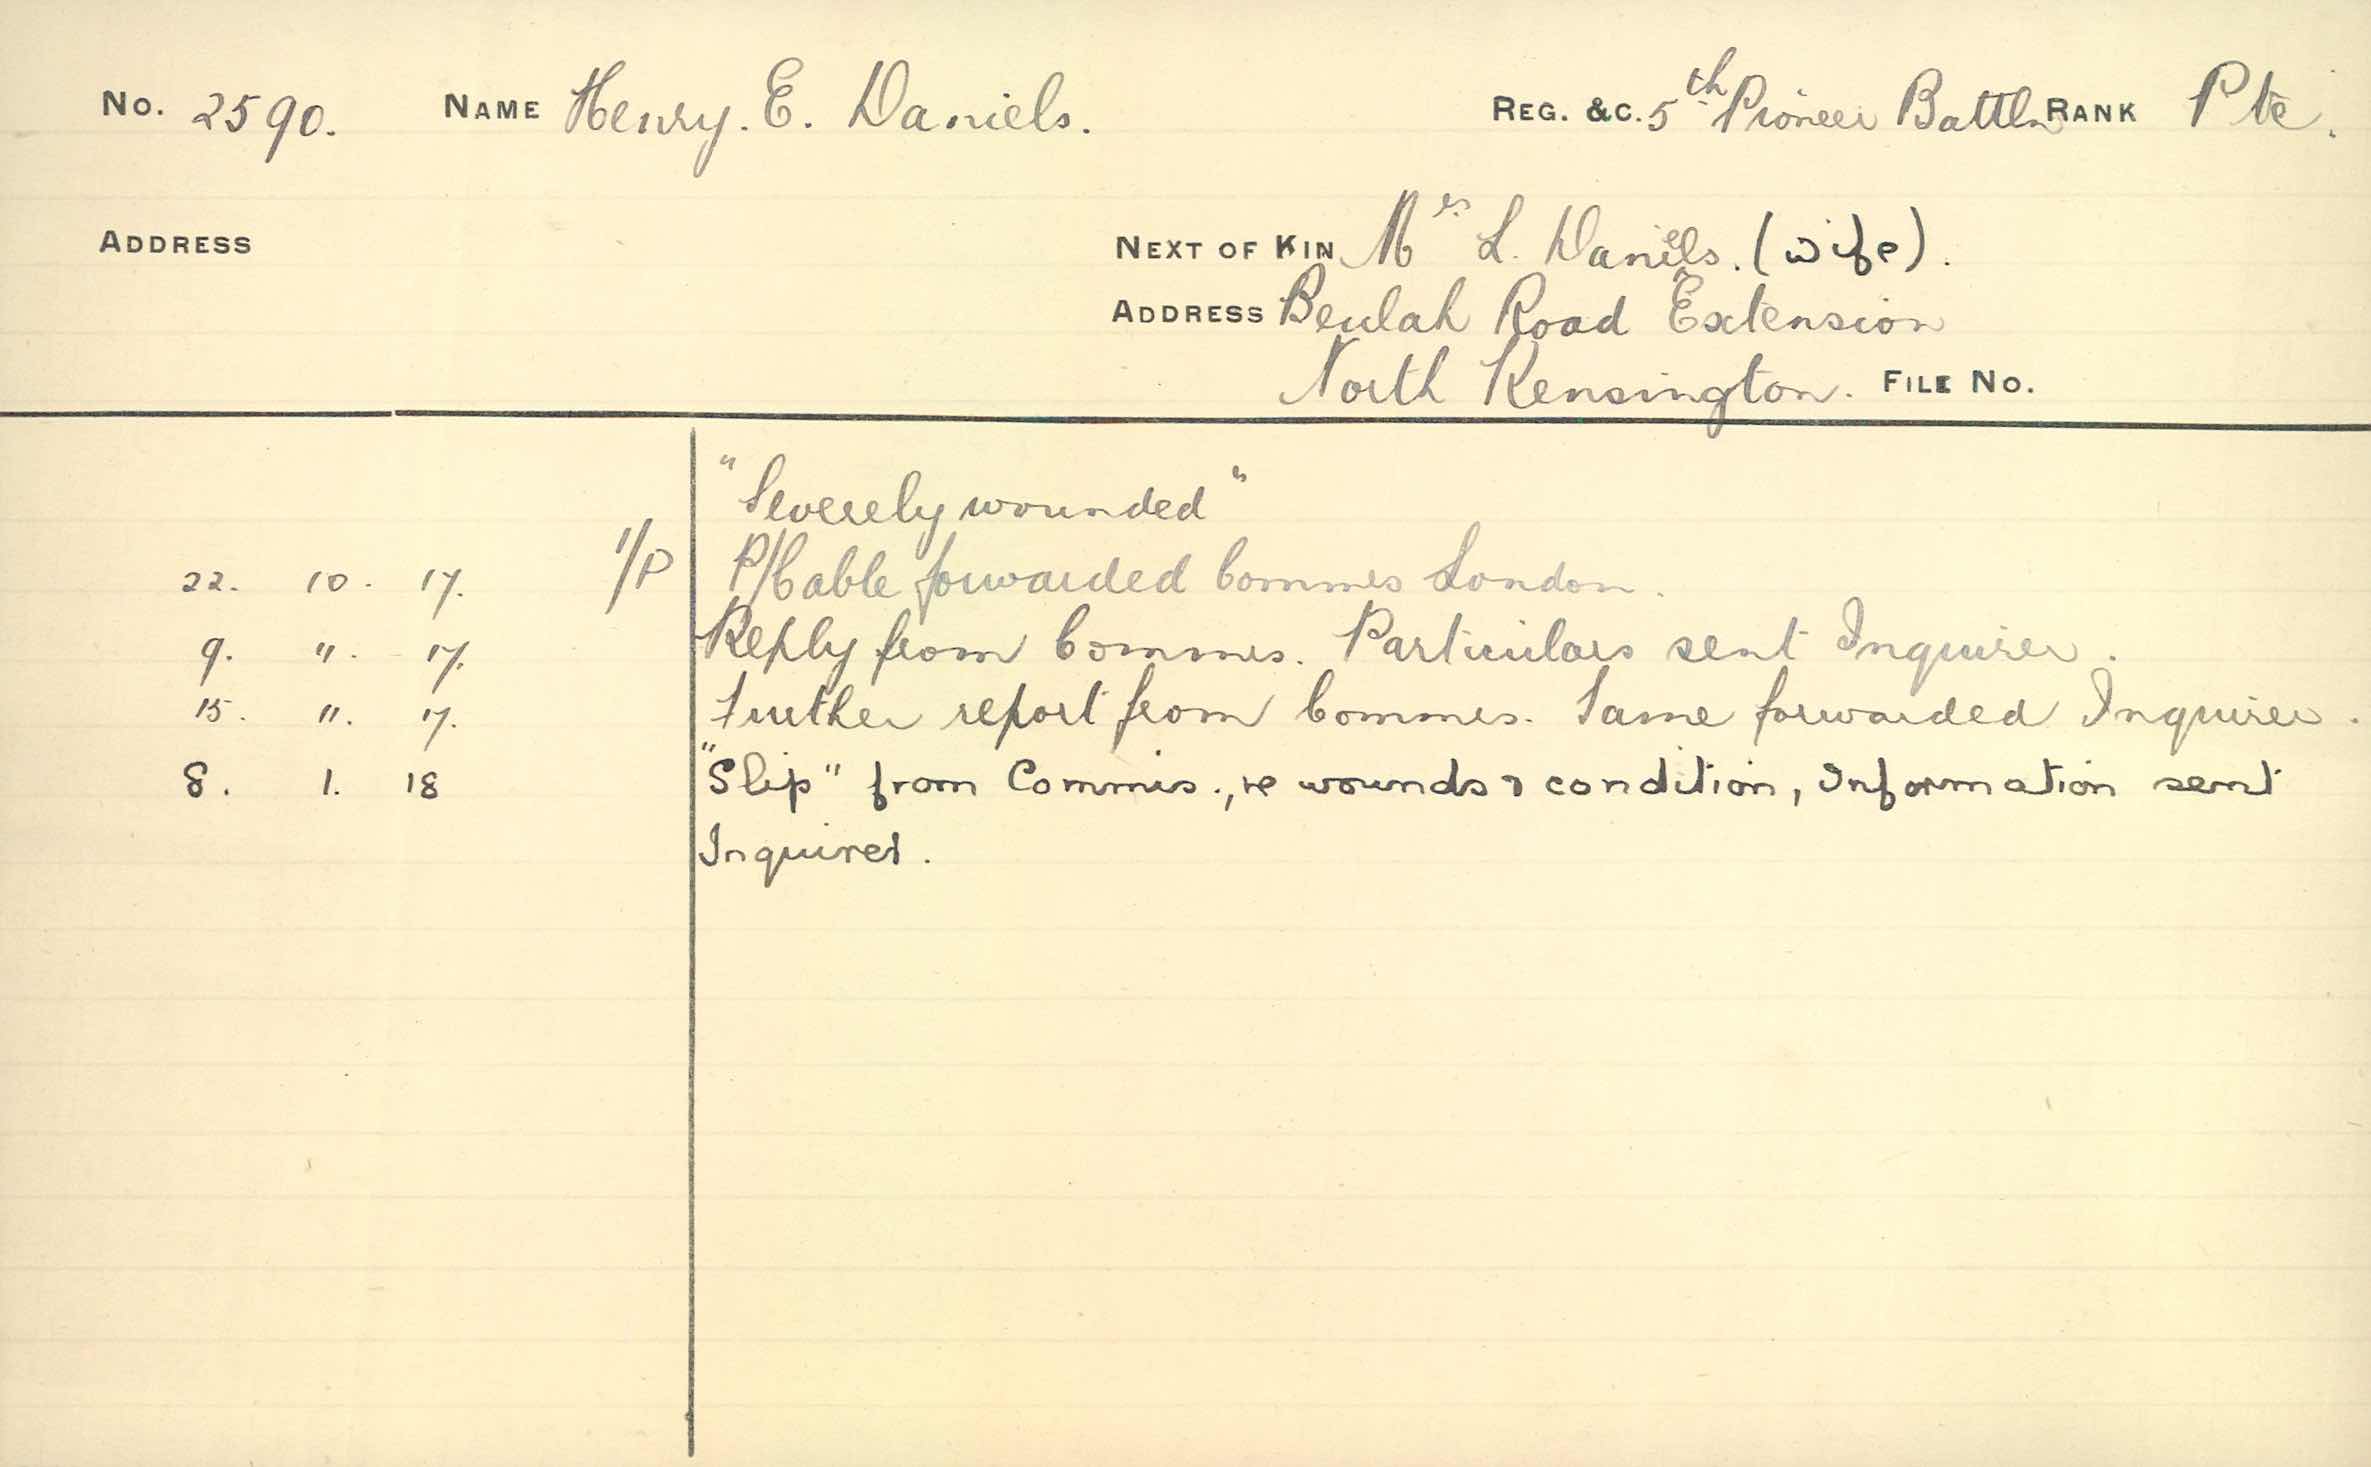 No. 2590. NAME Henry. E. Daniels. REG. &C. 5th Pioneer Battln RANK Pte.
ADDRESS NEXT OF KIN Mrs L. Daniels. (wife).
ADDRESS Beulah Road Extension
North Kensington. FILE No.
"Severely wounded"
22. 10. 17. 1/P P/Cable forwarded Commis London.
9. ". 17. Reply from Commis. Particulars sent Inquirer.
15. ". 17. Further report from Commis. Same forwarded Inquirer.
8. 1. 18 "Slip" from Commis., re wounds & condition, Information sent
Inquirer.